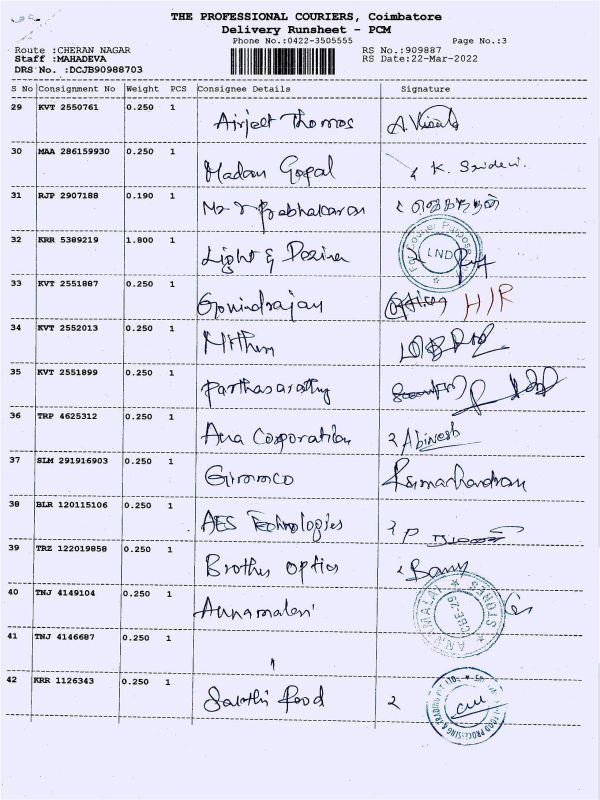 THE PROFESSIONAL COURIERS, Coimbatore
Delivery Runsheet - PCM
Phone No.:0422-3505555 Page No.:3
Route :CHERAN NAGAR RS No.:909887
Staff :MAHADEVA RS Date:22-Mar-2022
DRS No. :DCJB90988703
S No Consignment No Weight PCS Consignee Details Signature
29 KVT 2550761 0.250 1 Airjeet Thomos
30 MAA 286159930 0.250 1 Madan Gopal K. Sridevi.
31 RJP 2907188 0.190 1 Mr T Prabhakaran
32 KRR 5389219 1.800 1 Light & Desire LND
For Courier Purpose
33 KVT 2551887 0.250 1 Govindrajan H/R
34 KVT 2552013 0.250 1 Nithin
35 KVT 2551899 0.250 1 Parthasarathy
36 TRP 4625312 0.250 1 Ana Corporation Abinesh
37 SLM 291916903 0.250 1 Gimmco Ramachandran
38 BLR 120115106 0.250 1 AES Technologies P
39 TRZ 122019858 0.250 1 Brother Optics
40 TNJ 4149104 0.250 1 Annamalai
ANNAMALAI STORES
41 TNJ 4146687 0.250 1 "
42 KRR 1126343 0.250 1 Sakthi Food
FOOD PROCESSING & TRADING PVT. LTD.